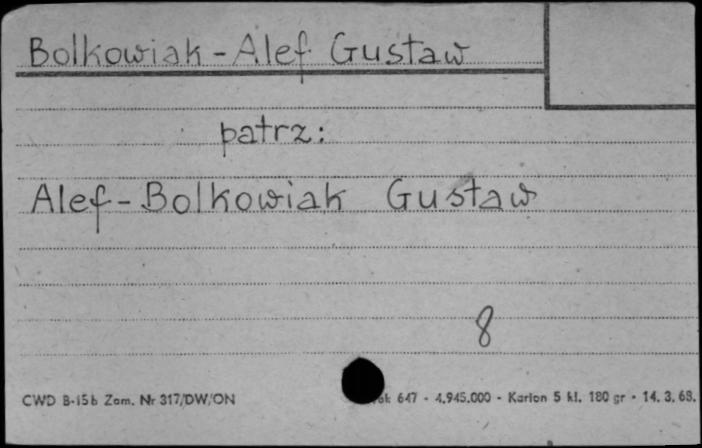 Bolkowiak-Alef Gustaw
patrz:
Alef-Bolkowiak Gustaw
8
CWD B-15b Zam. Nr 317/DW/ON 647 - 4.945.000 - Karton 5 kl. 180 gr - 14. 3. 68.